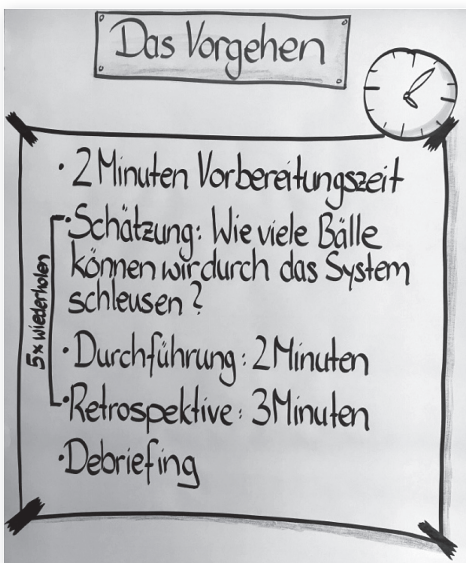 Das Vorgehen
· 2 Minuten Vorbereitungszeit
· Schätzung: Wie viele Bälle
können wir durch das System
schleusen?
· Durchführung: 2 Minuten
· Retrospektive: 3 Minuten
5x wiederholen
· Debriefing